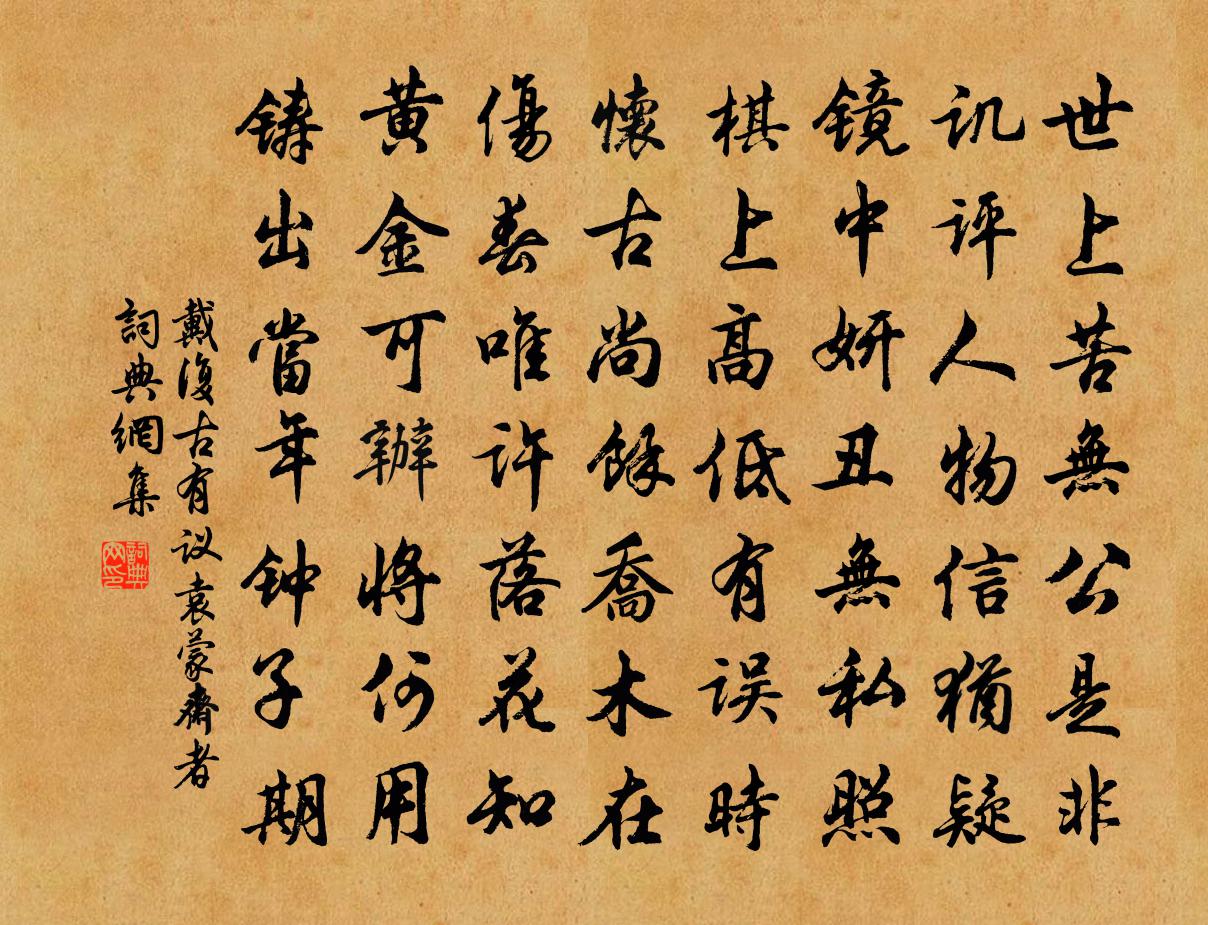 世上苦無公是非
讥评人物信猶疑
镜中妍丑無私照
棋上高低有误時
懷古尚餘喬木在
傷春唯许落花知
黄金可辦將何用
鋳出當年钟子期
戴復古有议袁蒙齋者
詞典網集
詞典网印